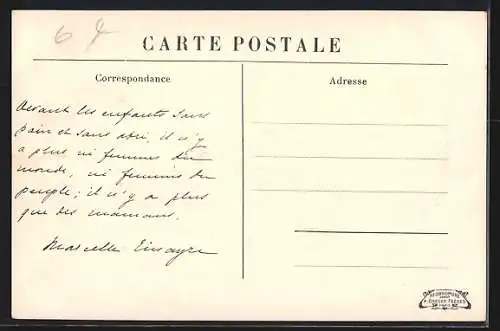 6
CARTE POSTALE
Correspondance
Adresse
Devant les enfants sans
pain et sans abri, il n'y
a plus ni femmes du
monde, ni femmes du
peuple ; il n'y a plus
que des mamans.
Marcelle Tinayre